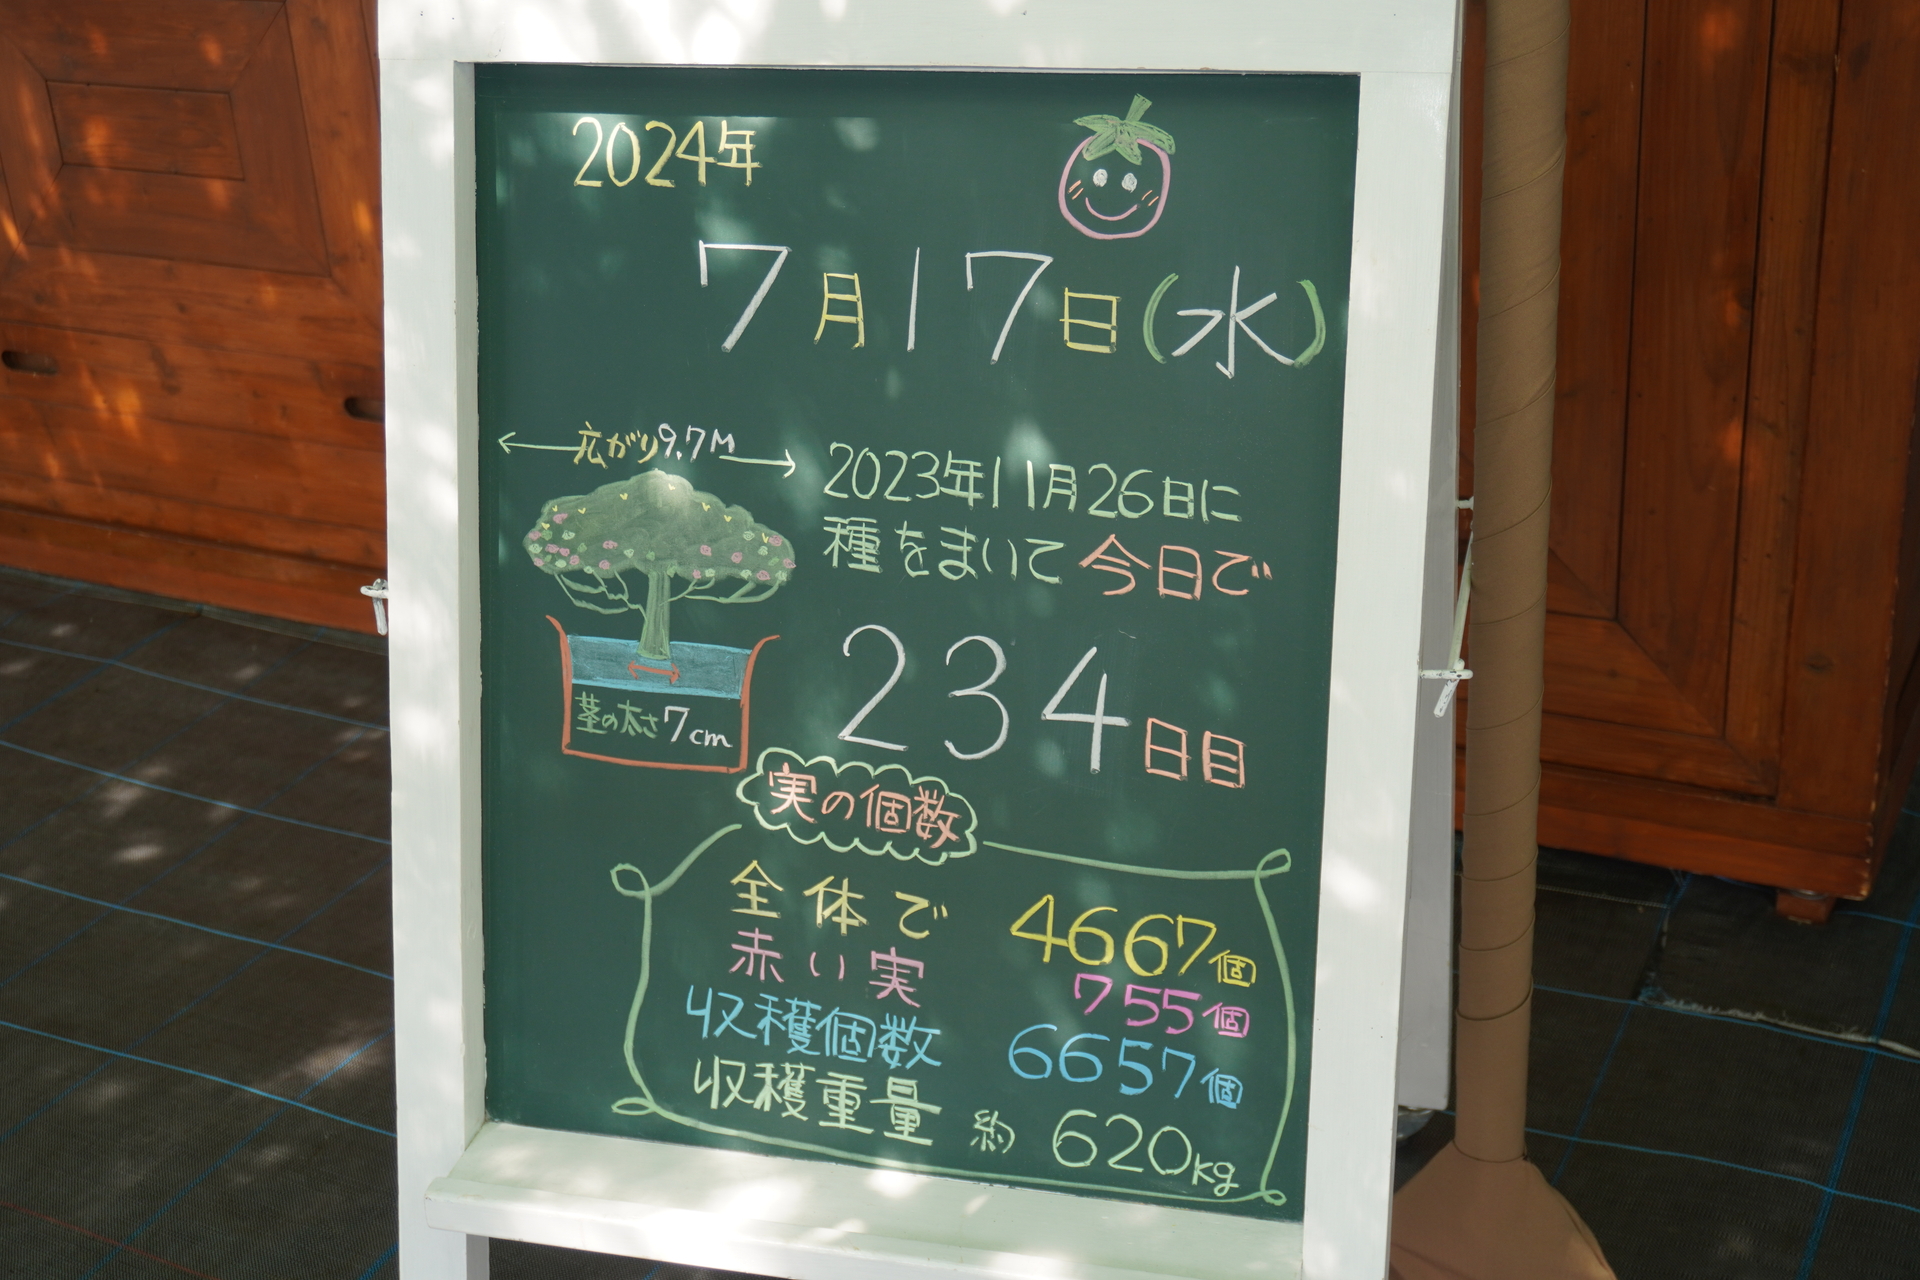 2024年
7月17日(水)
広がり9.7M
2023年11月26日に
種をまいて今日で
234日目
茎の太さ7cm
実の個数
全体で 4667個
赤い実 755個
収穫個数 6657個
収穫重量 約620kg